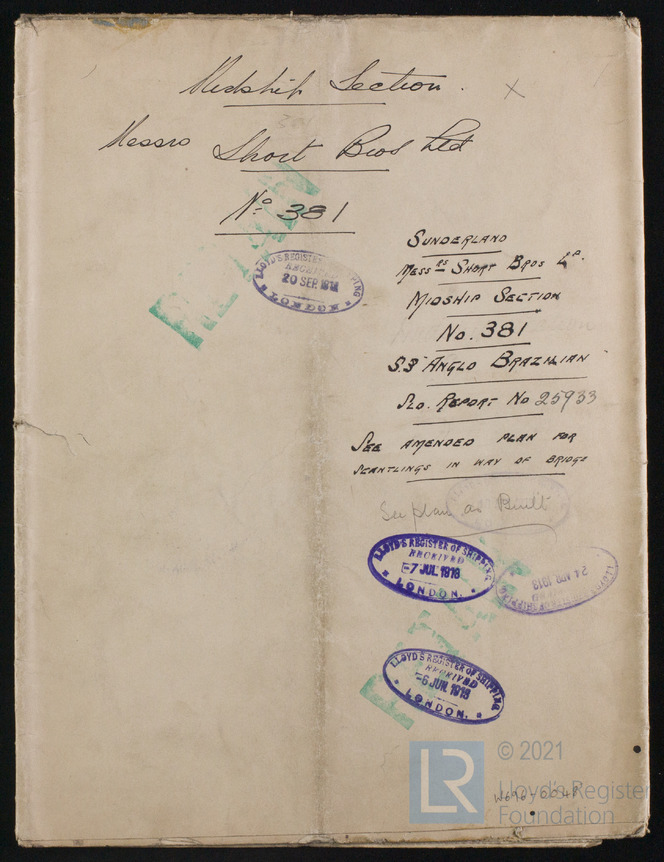 Midship Section.
X
Messrs Short Bros Ltd
No 381
LLOYD'S REGISTER OF SHIPPING
RECEIVED
20 SEP. 1913
LONDON
SUNDERLAND
MESSRS SHORT BROS LD.
MIDSHIP SECTION
No. 381
S.S "ANGLO BRAZILIAN
SLD. REPORT No 25933
SEE AMENDED PLAN FOR
SCANTLINGS IN WAY OF BRIDGE
See plan as Built
LLOYD'S REGISTER OF SHIPPING
RECEIVED
-7 JUL 1913
LONDON.
24 APR 1913
LLOYD'S REGISTER OF SHIPPING
RECEIVED
-6 JUN. 1913
LONDON.
LR
© 2021
Lloyd's Register
Foundation
W696-0048